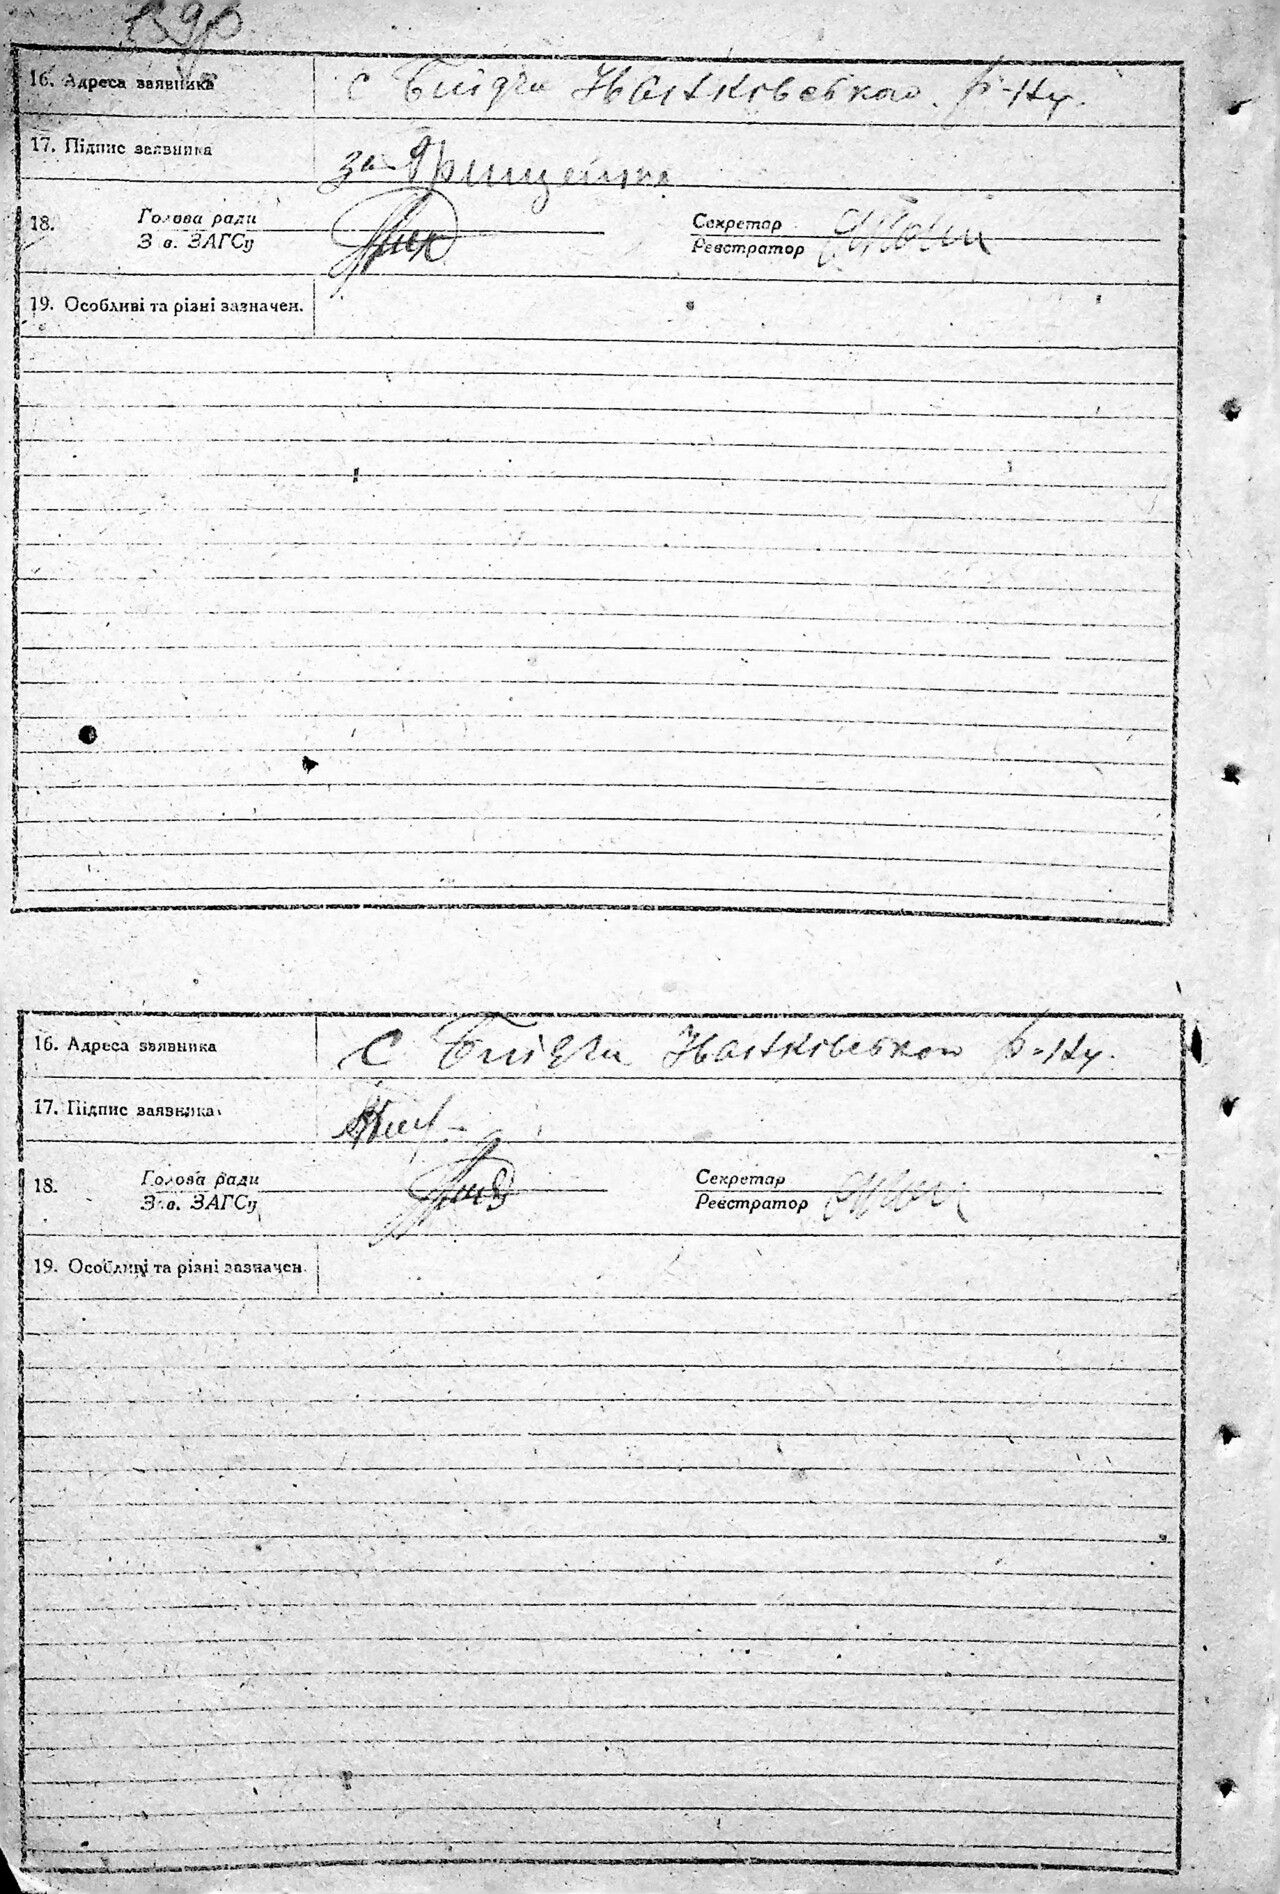 16. Адреса заявника с Іванківського р-ну.
17. Підпис заявника за Грищенко
18. Голова ради Секретар
Зав. ЗАГСу Реєстратор
19. Особливі та різні зазначен.
16. Адреса заявника с Іванківського р-ну.
17. Підпис заявника
18. Голова ради Секретар
Зав. ЗАГСу Реєстратор
19. Особливі та різні зазначен.